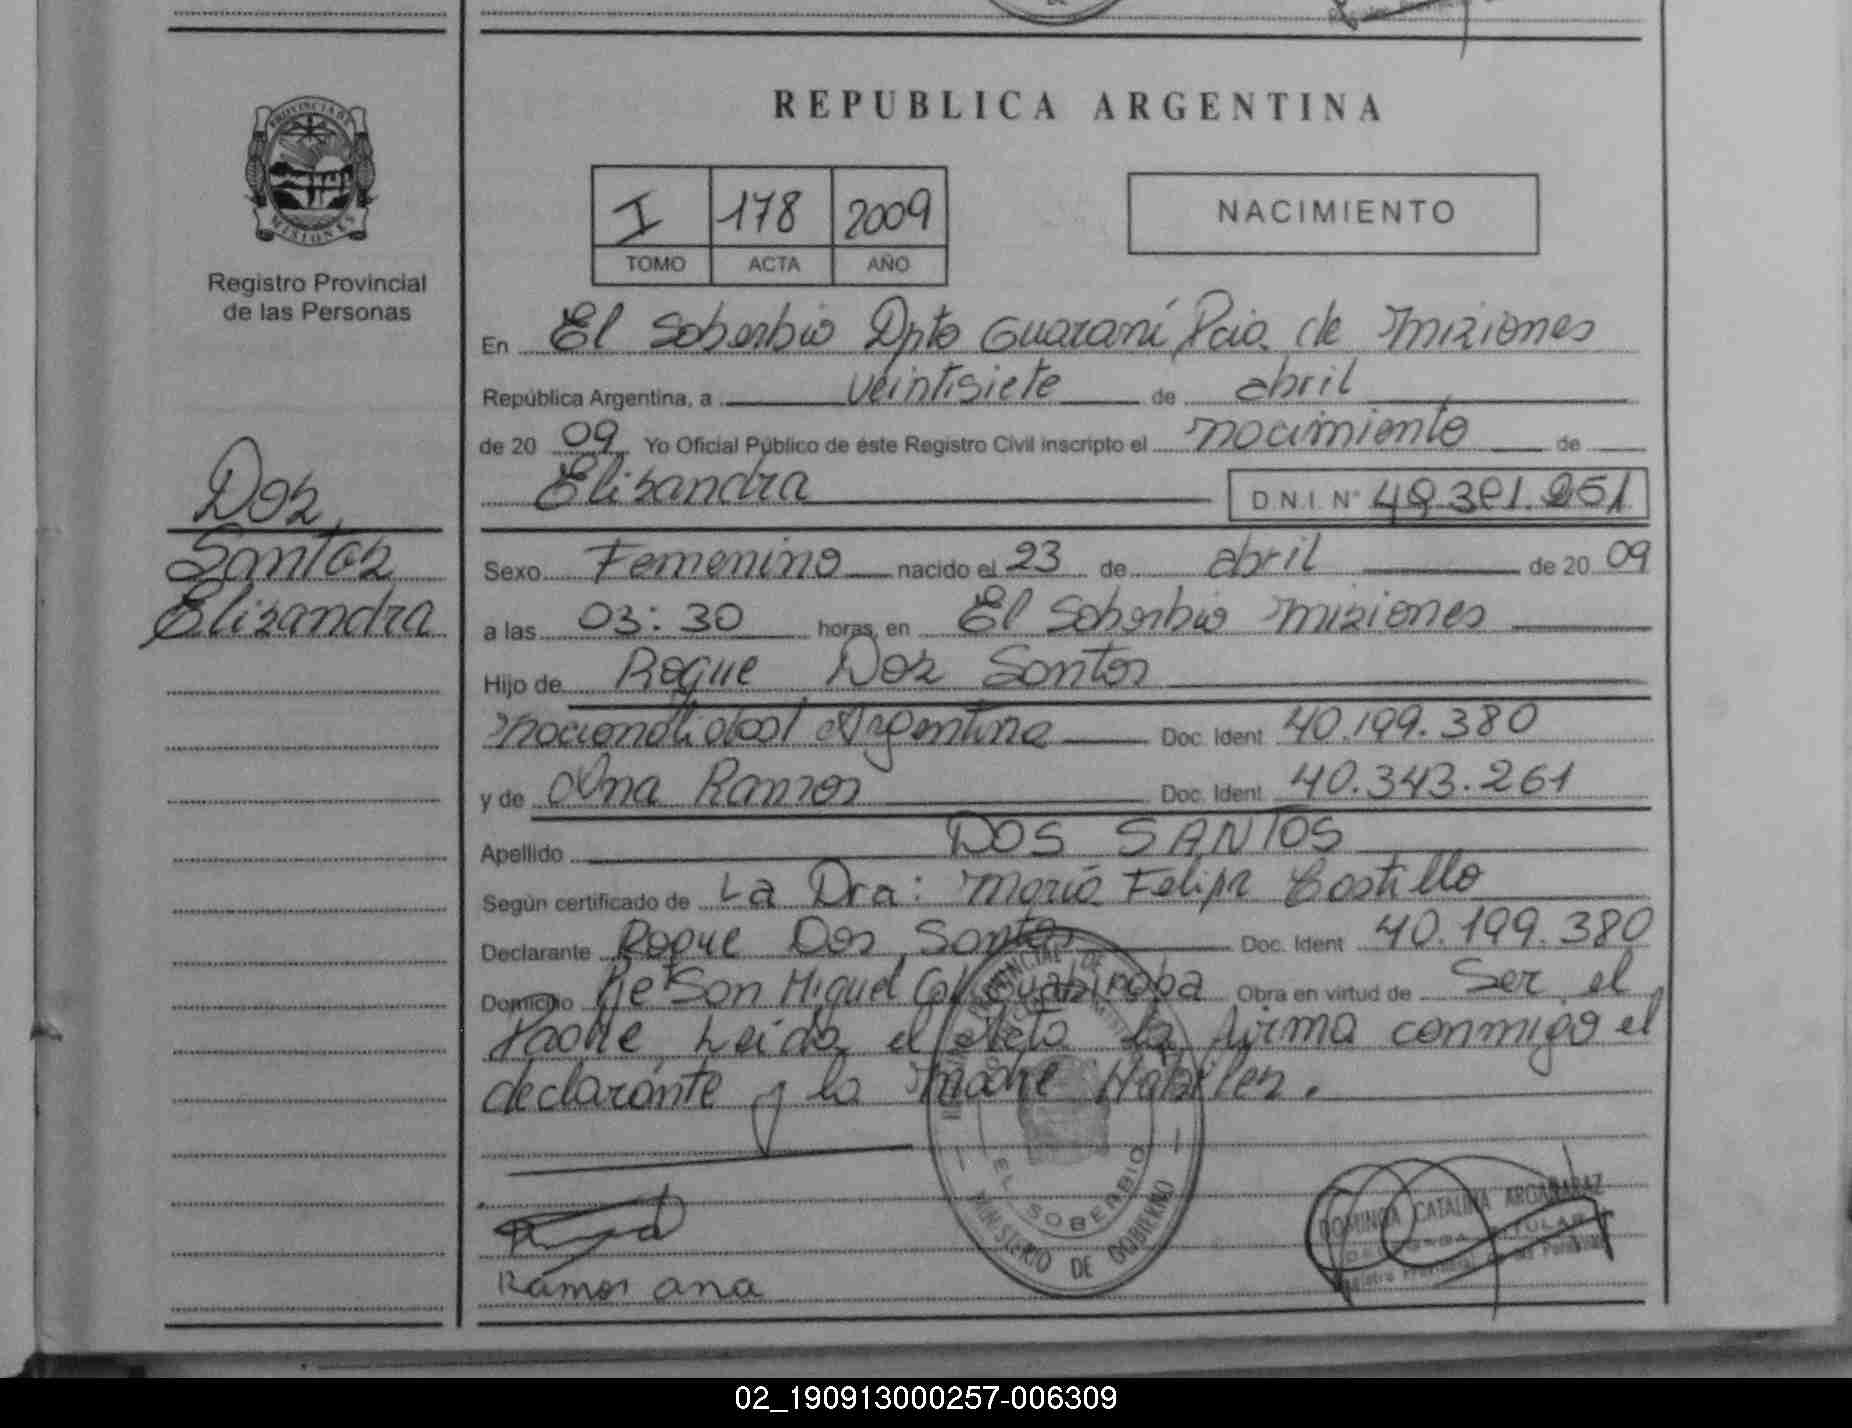 REPUBLICA ARGENTINA
PROVINCIA DE
MISIONES
Registro Provincial
de las Personas
I 178 2009
TOMO ACTA AÑO
NACIMIENTO
En El Soberbio Dpto Guaraní Pcia. de Misiones
República Argentina, a veintisiete de abril
de 20 09 Yo Oficial Público de éste Registro Civil inscripto el nacimiento de
Elisandra D.N.I. Nº 49.391.251
Dos
Santos
Elisandra
Sexo Femenino nacido el 23 de abril de 20 09
a las 03:30 horas, en El Soberbio Misiones
Hijo de Roque Dos Santos
nacionalidad Argentina Doc. Ident. 40.199.380
y de Ana Ramos Doc. Ident. 40.343.261
Apellido DOS SANTOS
Según certificado de La Dra: María Felipa Costillo
Declarante Roque Dos Santos Doc. Ident. 40.199.380
Domicilio San Miguel Col Guabiroba Obra en virtud de Ser el
Padre Leida el Acta la firma conmigo el
declarante y la Madre
EL SOBERBIO
MINISTERIO DE GOBIERNO
Ramos ana
DOMINGA CATALINA ARGAÑARAZ
TITULAR
02_190913000257-006309